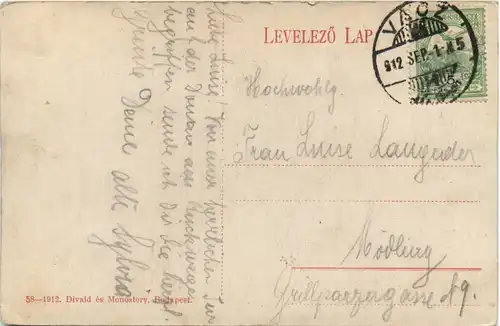 LEVELEZŐ LAP
VÁCZ
912 SEP. 1
Hochwohlg.
Frau Luise Langader
Mödling
Grillparzergasse 19.
Liebe Luise! Von einer herrlichen Tur
an der Donau am Rückwege
begriffen sende ich Dir die herzl.
Grüße Deine alte Sylvia
58—1912. Divald és Monostory, Budapest.